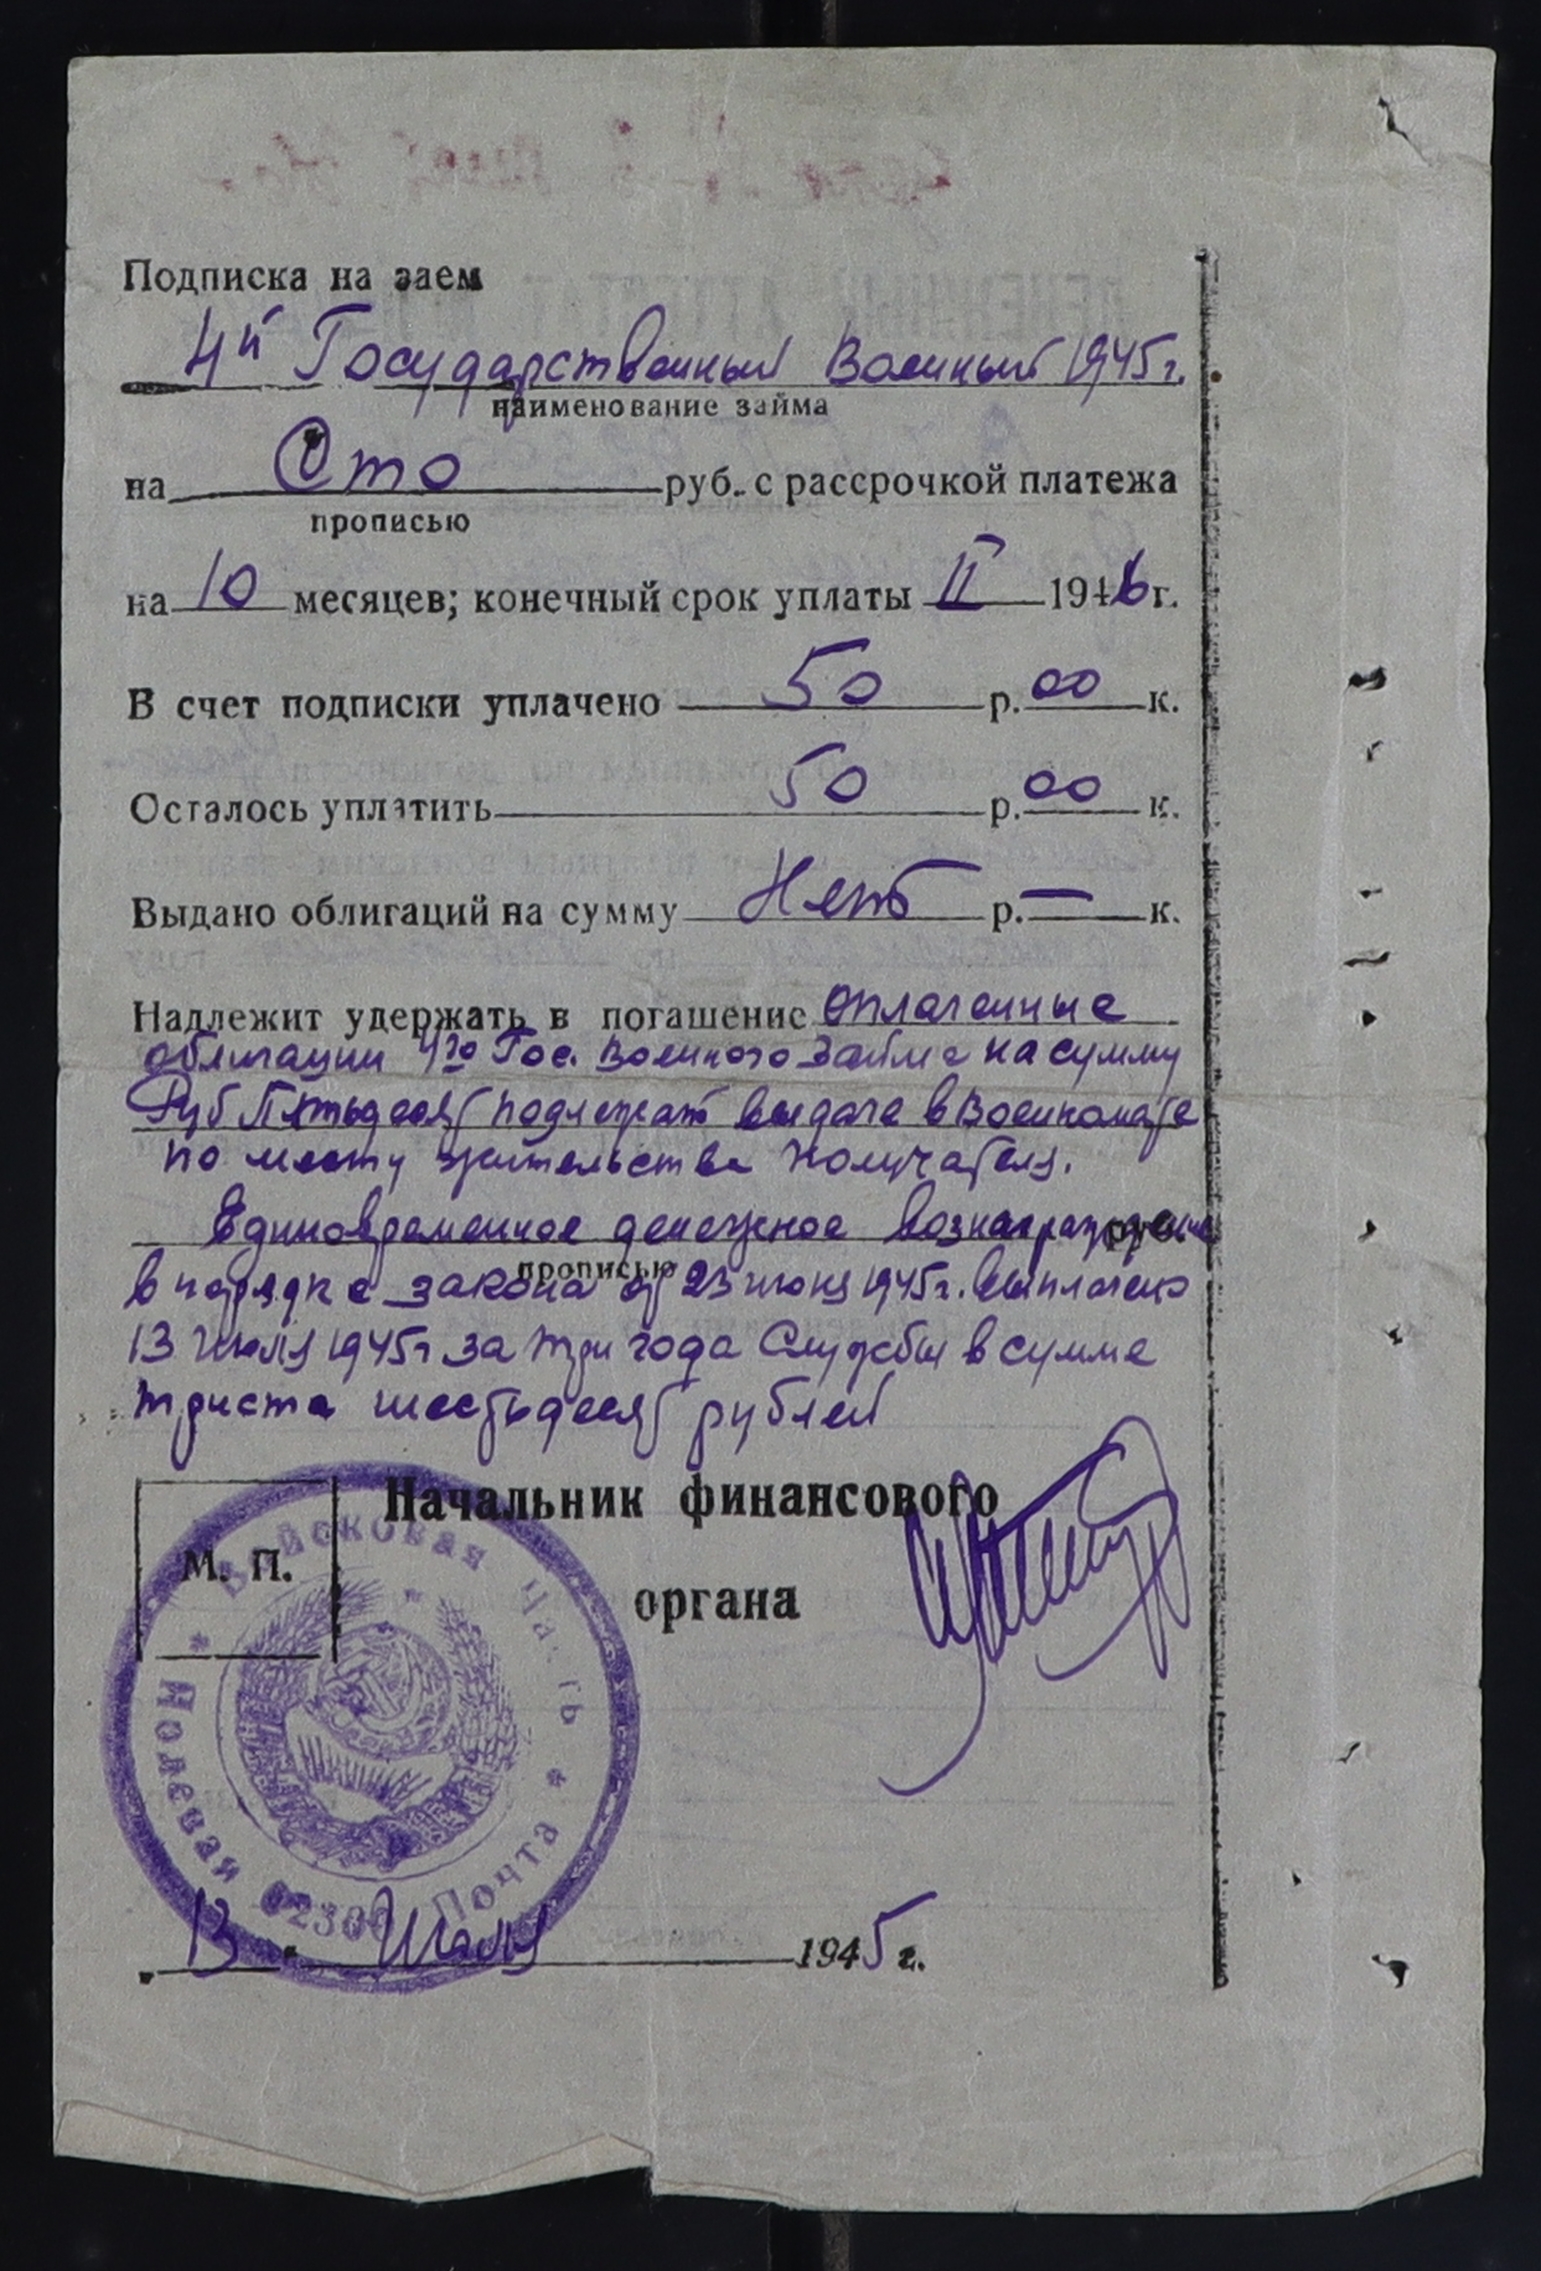 Подписка на заем
4й Государственный Военный 1945г.
наименование займа
на Сто руб. с рассрочкой платежа
прописью
на 10 месяцев; конечный срок уплаты II 1946 г.
В счет подписки уплачено 50 р. 00 к.
Осталось уплатить 50 р. 00 к.
Выдано облигаций на сумму Нет р. — к.
Надлежит удержать в погашение Оплаченные
облигации 4го Гос. Военного Займа на сумму
Руб Пятьдесят подлежат выдаче в Военкомате
по месту жительства получателя.
Единовременное денежное вознаграждение руб.
прописью
в порядке закона от 23 июня 1945г. выплачено
13 Июля 1945г за три года Службы в сумме
триста шестьдесят рублей
Начальник финансового
М. П.
органа
Войсковая Часть * Полевая Почта *
13 Июля 1945 г.